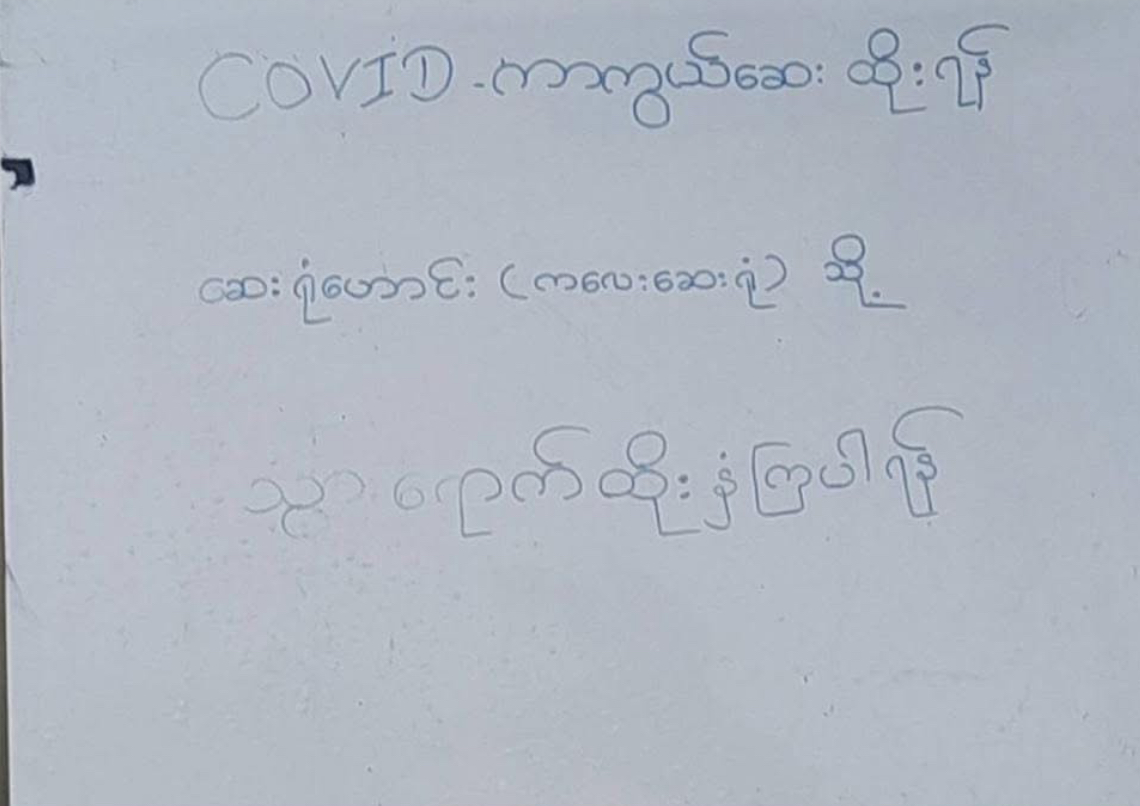 COVID-ကာကွယ်ဆေး ထိုးရန်
ဆေးရုံဟောင်း (ကလေးဆေးရုံ) သို့
သွားရောက်ထိုးနှံကြပါရန်